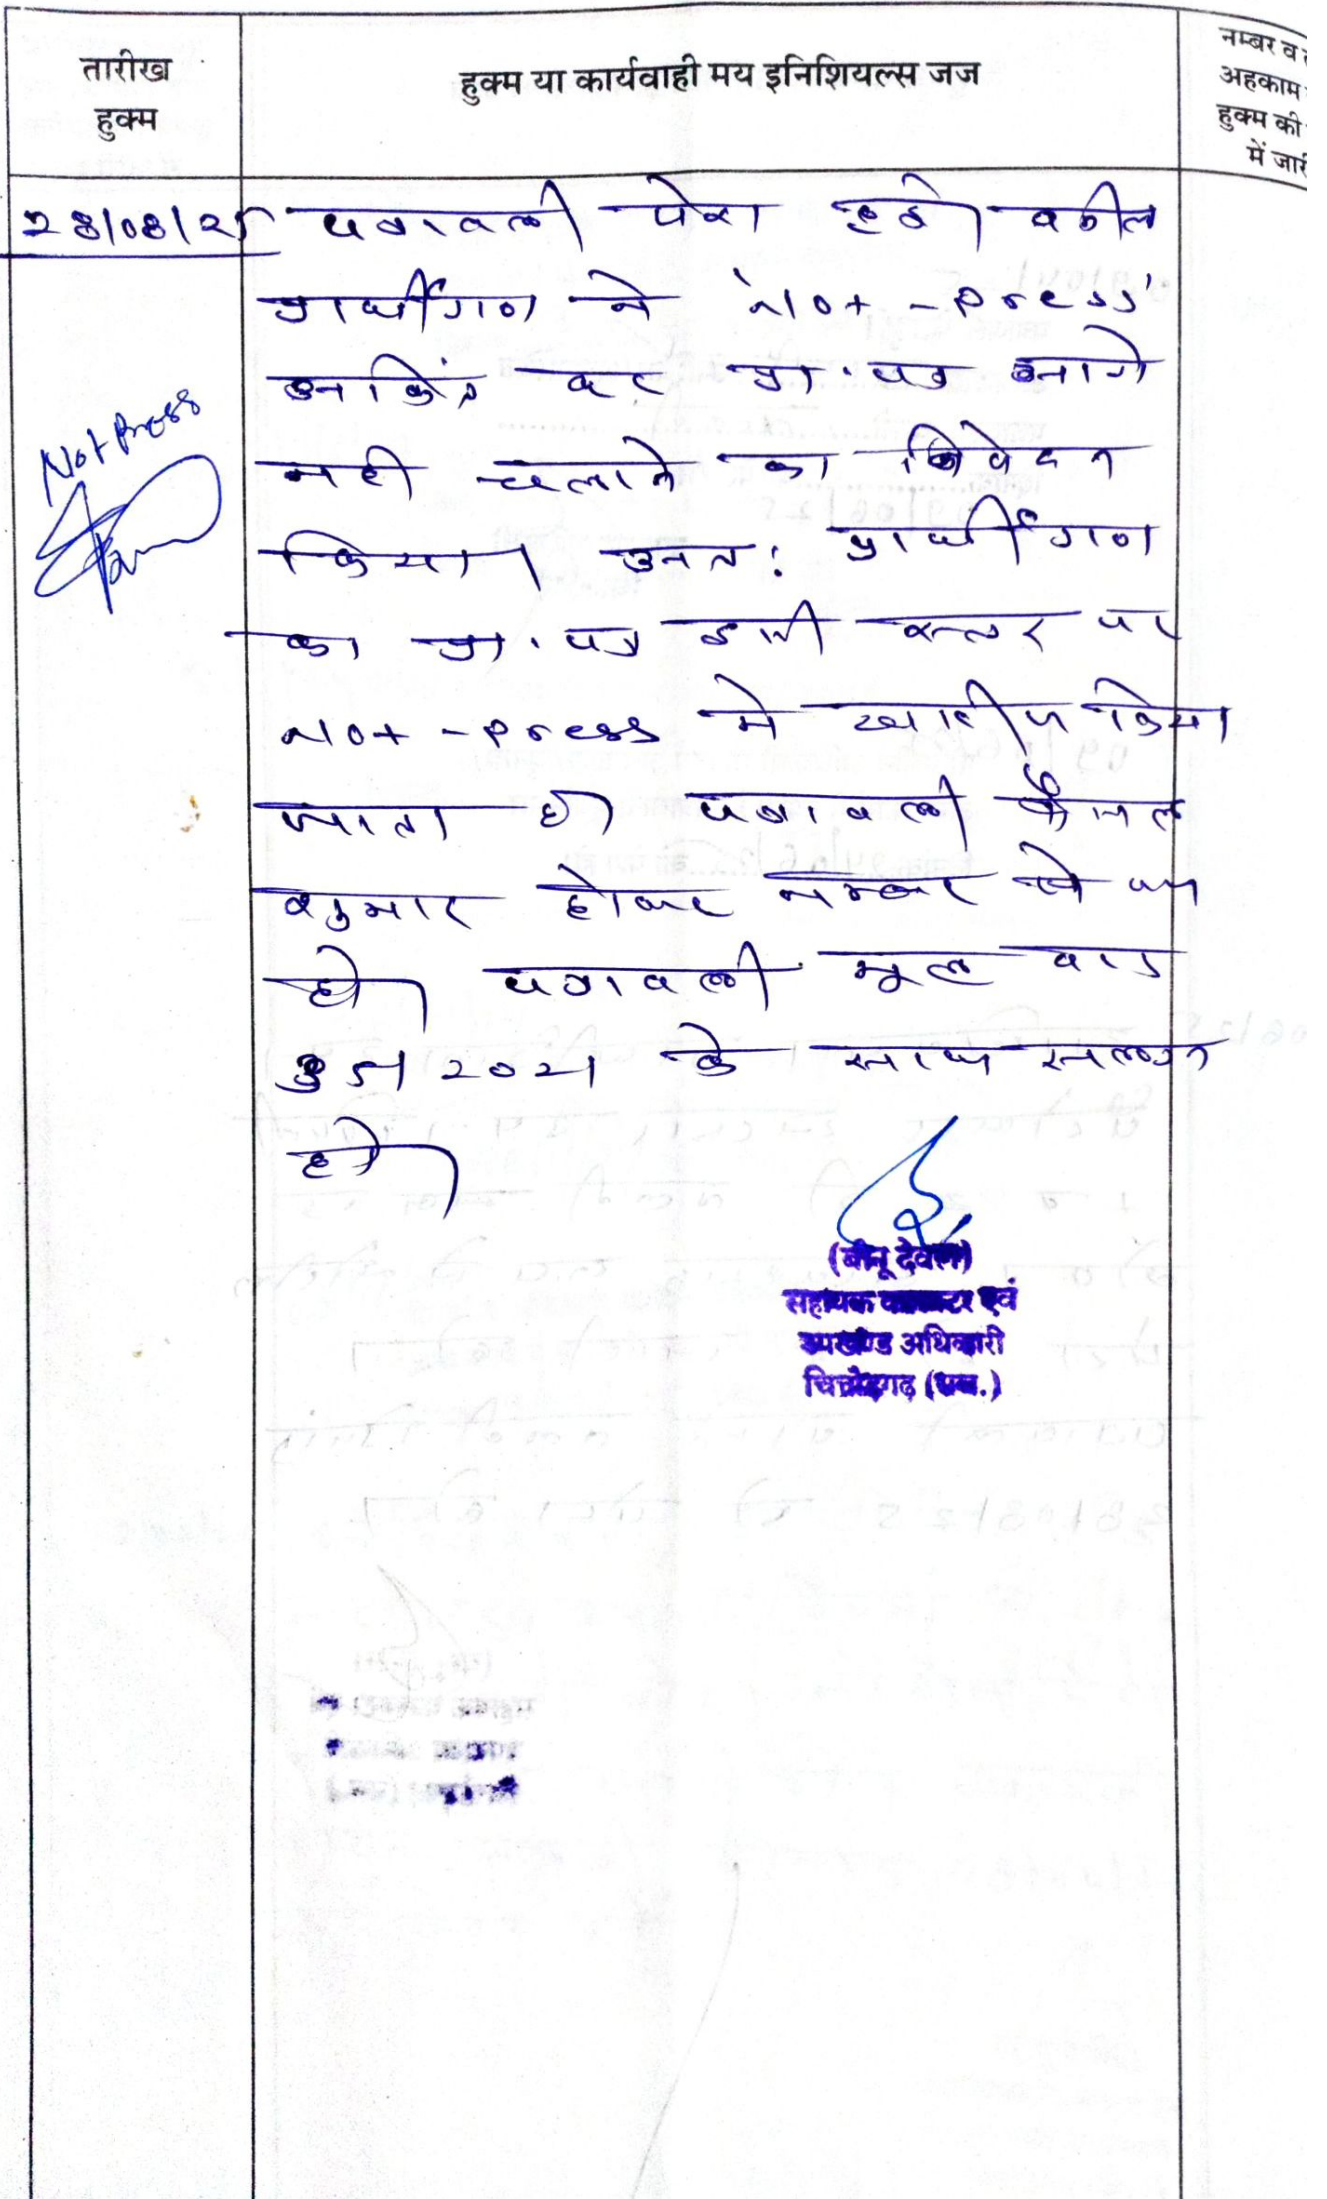 तारीख
हुक्म
हुक्म या कार्यवाही मय इनिशियल्स जज
नम्बर व
अहकाम
हुक्म की
में जारी
28/08/25 पत्रावली पेश हुई। वकील
प्रार्थीगण ने 'Not-Press'
अंकित कर प्रा.पत्र आगे
नही चलाने का निवेदन
किया। अतः प्रार्थीगण
का प्रा.पत्र इसी स्तर पर
Not-Press मे खारीज किया
जाता है। पत्रावली फैसल
शुमार होकर नम्बर से कम
हो। पत्रावली मूल वाद
2021 के साथ संलग्न
हो।
Not Press
(बीनू देवल)
सहायक कलक्टर एवं
उपखण्ड अधिकारी
चित्तौड़गढ़ (राज.)